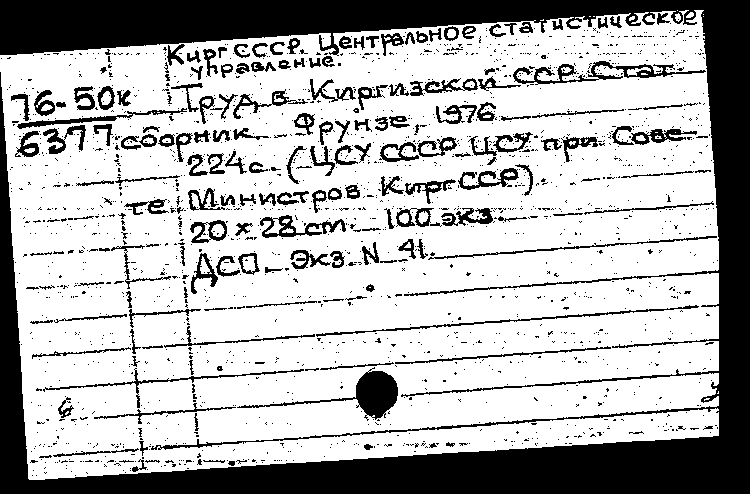 КиргСССР. Центральное статистическое
управление.
76-50к
6377
Труд в Киргизской ССР. Стат.
сборник. Фрунзе, 1976.
224с. (ЦСУ СССР. ЦСУ при Сове-
те Министров КиргССР).
20 × 28 cm. 100 экз.
ДСП. Экз. N 41.
6